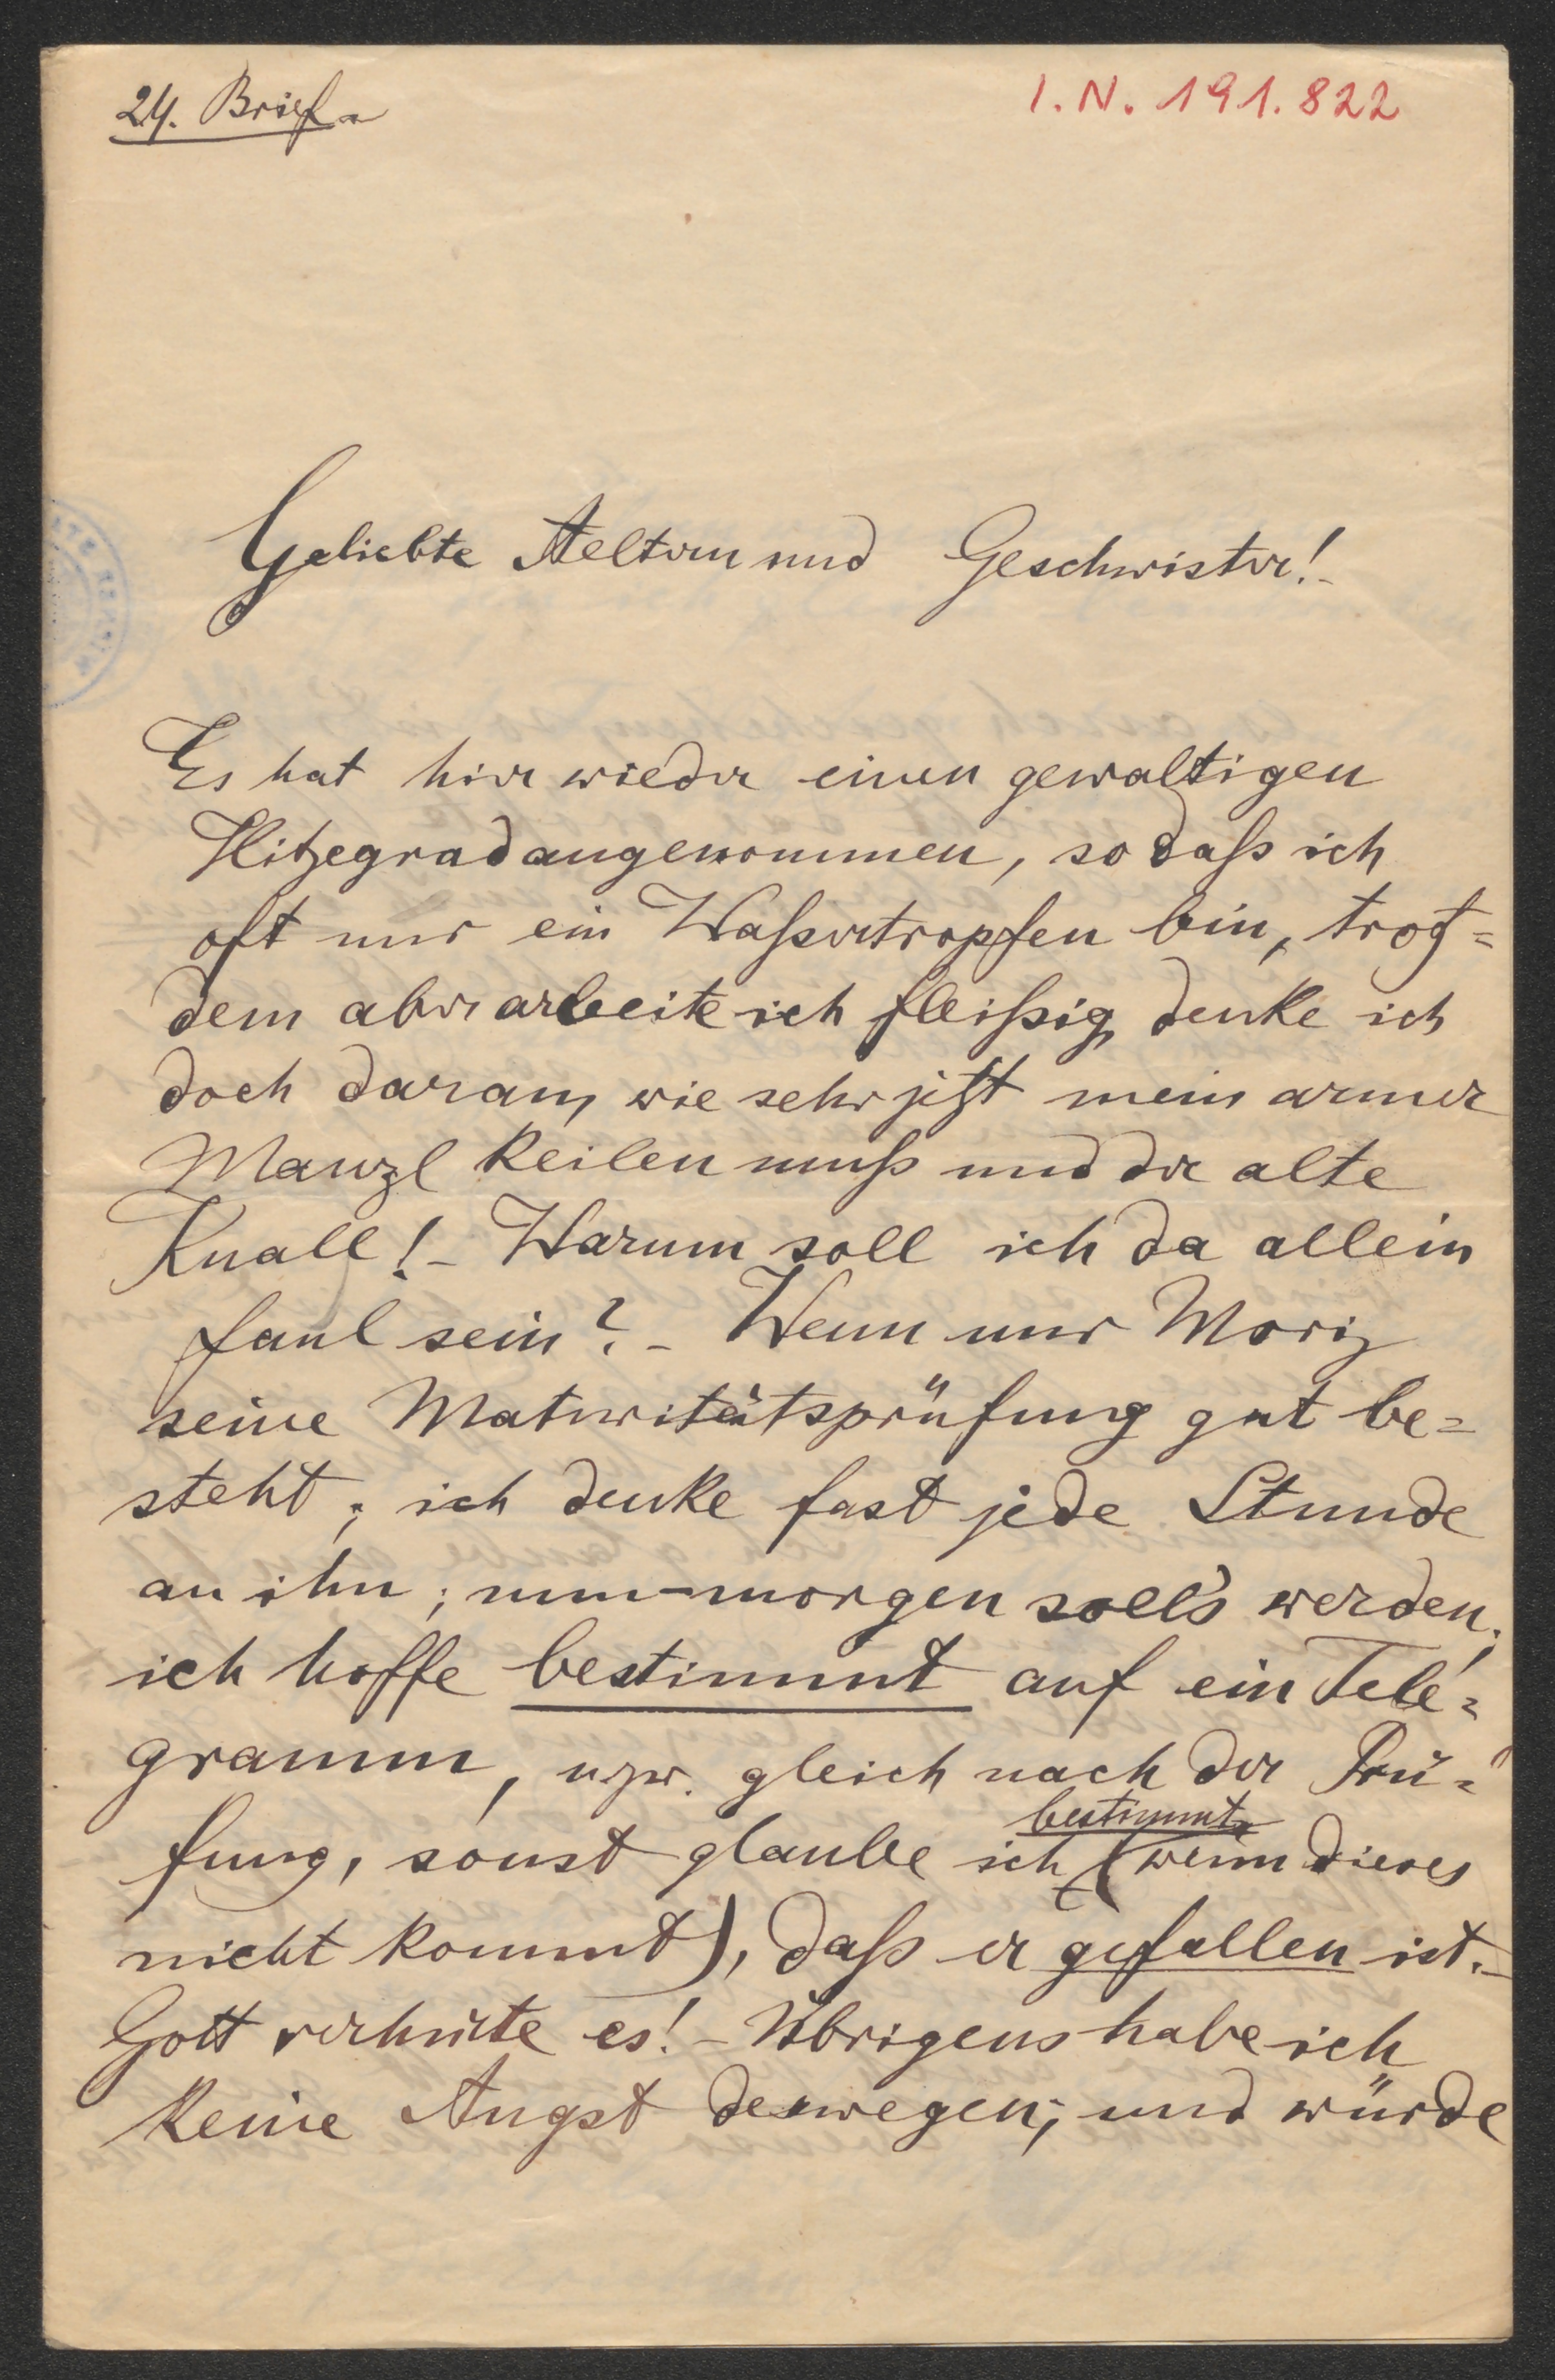 24. Brief.
I.N. 191.822
Geliebte Aeltern und Geschwister!
Es hat hier wieder einen gewaltigen
Hitzegrad angenommen, so daß ich
oft nur ein Waßertropfen bin, trotz=
dem aber arbeite ich fleißig, denke ich
doch daran, wie sehr jetzt mein armer
Manzl keilen muß und der alte
Knall! – Warum soll ich da allein
faul sein? – Wenn nur Moriz
seine Maturitätsprüfung gut be=
steht; ich denke fast jede Stunde
an ihn; nun – morgen soll's werden;
ich hoffe bestimmt auf ein Tele=
gramm, uzw. gleich nach der Prü=
bestimmt
fung, sonst glaube ich (wenn dieses
nicht kommt), daß er gefallen ist. –
Gott verhüte es! – Übrigens habe ich
keine Angst deswegen; und würde